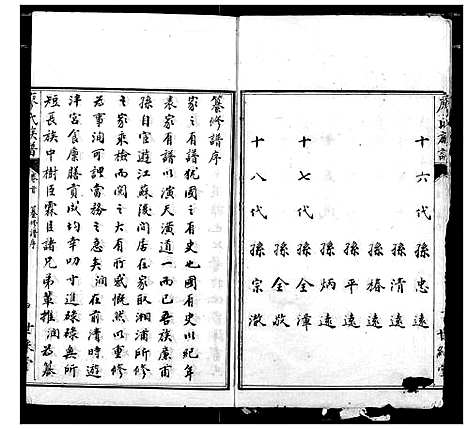 十六代孫忠遠
孫清遠
孫椿遠
孫平遠
孫炳遠
十七代孫全漳
孫全敬
十八代孫宗澈
纂修譜序
家之有譜猶國之有史也國有史以紀年
表家有譜以演天潢道一而已吾族廉甫
孫自宦遊江蘇後間居在家取湘浦所修
之家乘檢而閱之大有所感慨然以重修
為事洵可當務之急矣潤在前清時遊
泮宮食廩膳貢成均幸叨寸進碌碌無所
短長族中樹臣霖臣諸兄弟輩推潤為纂
氏族譜
卷首
纂修譜序